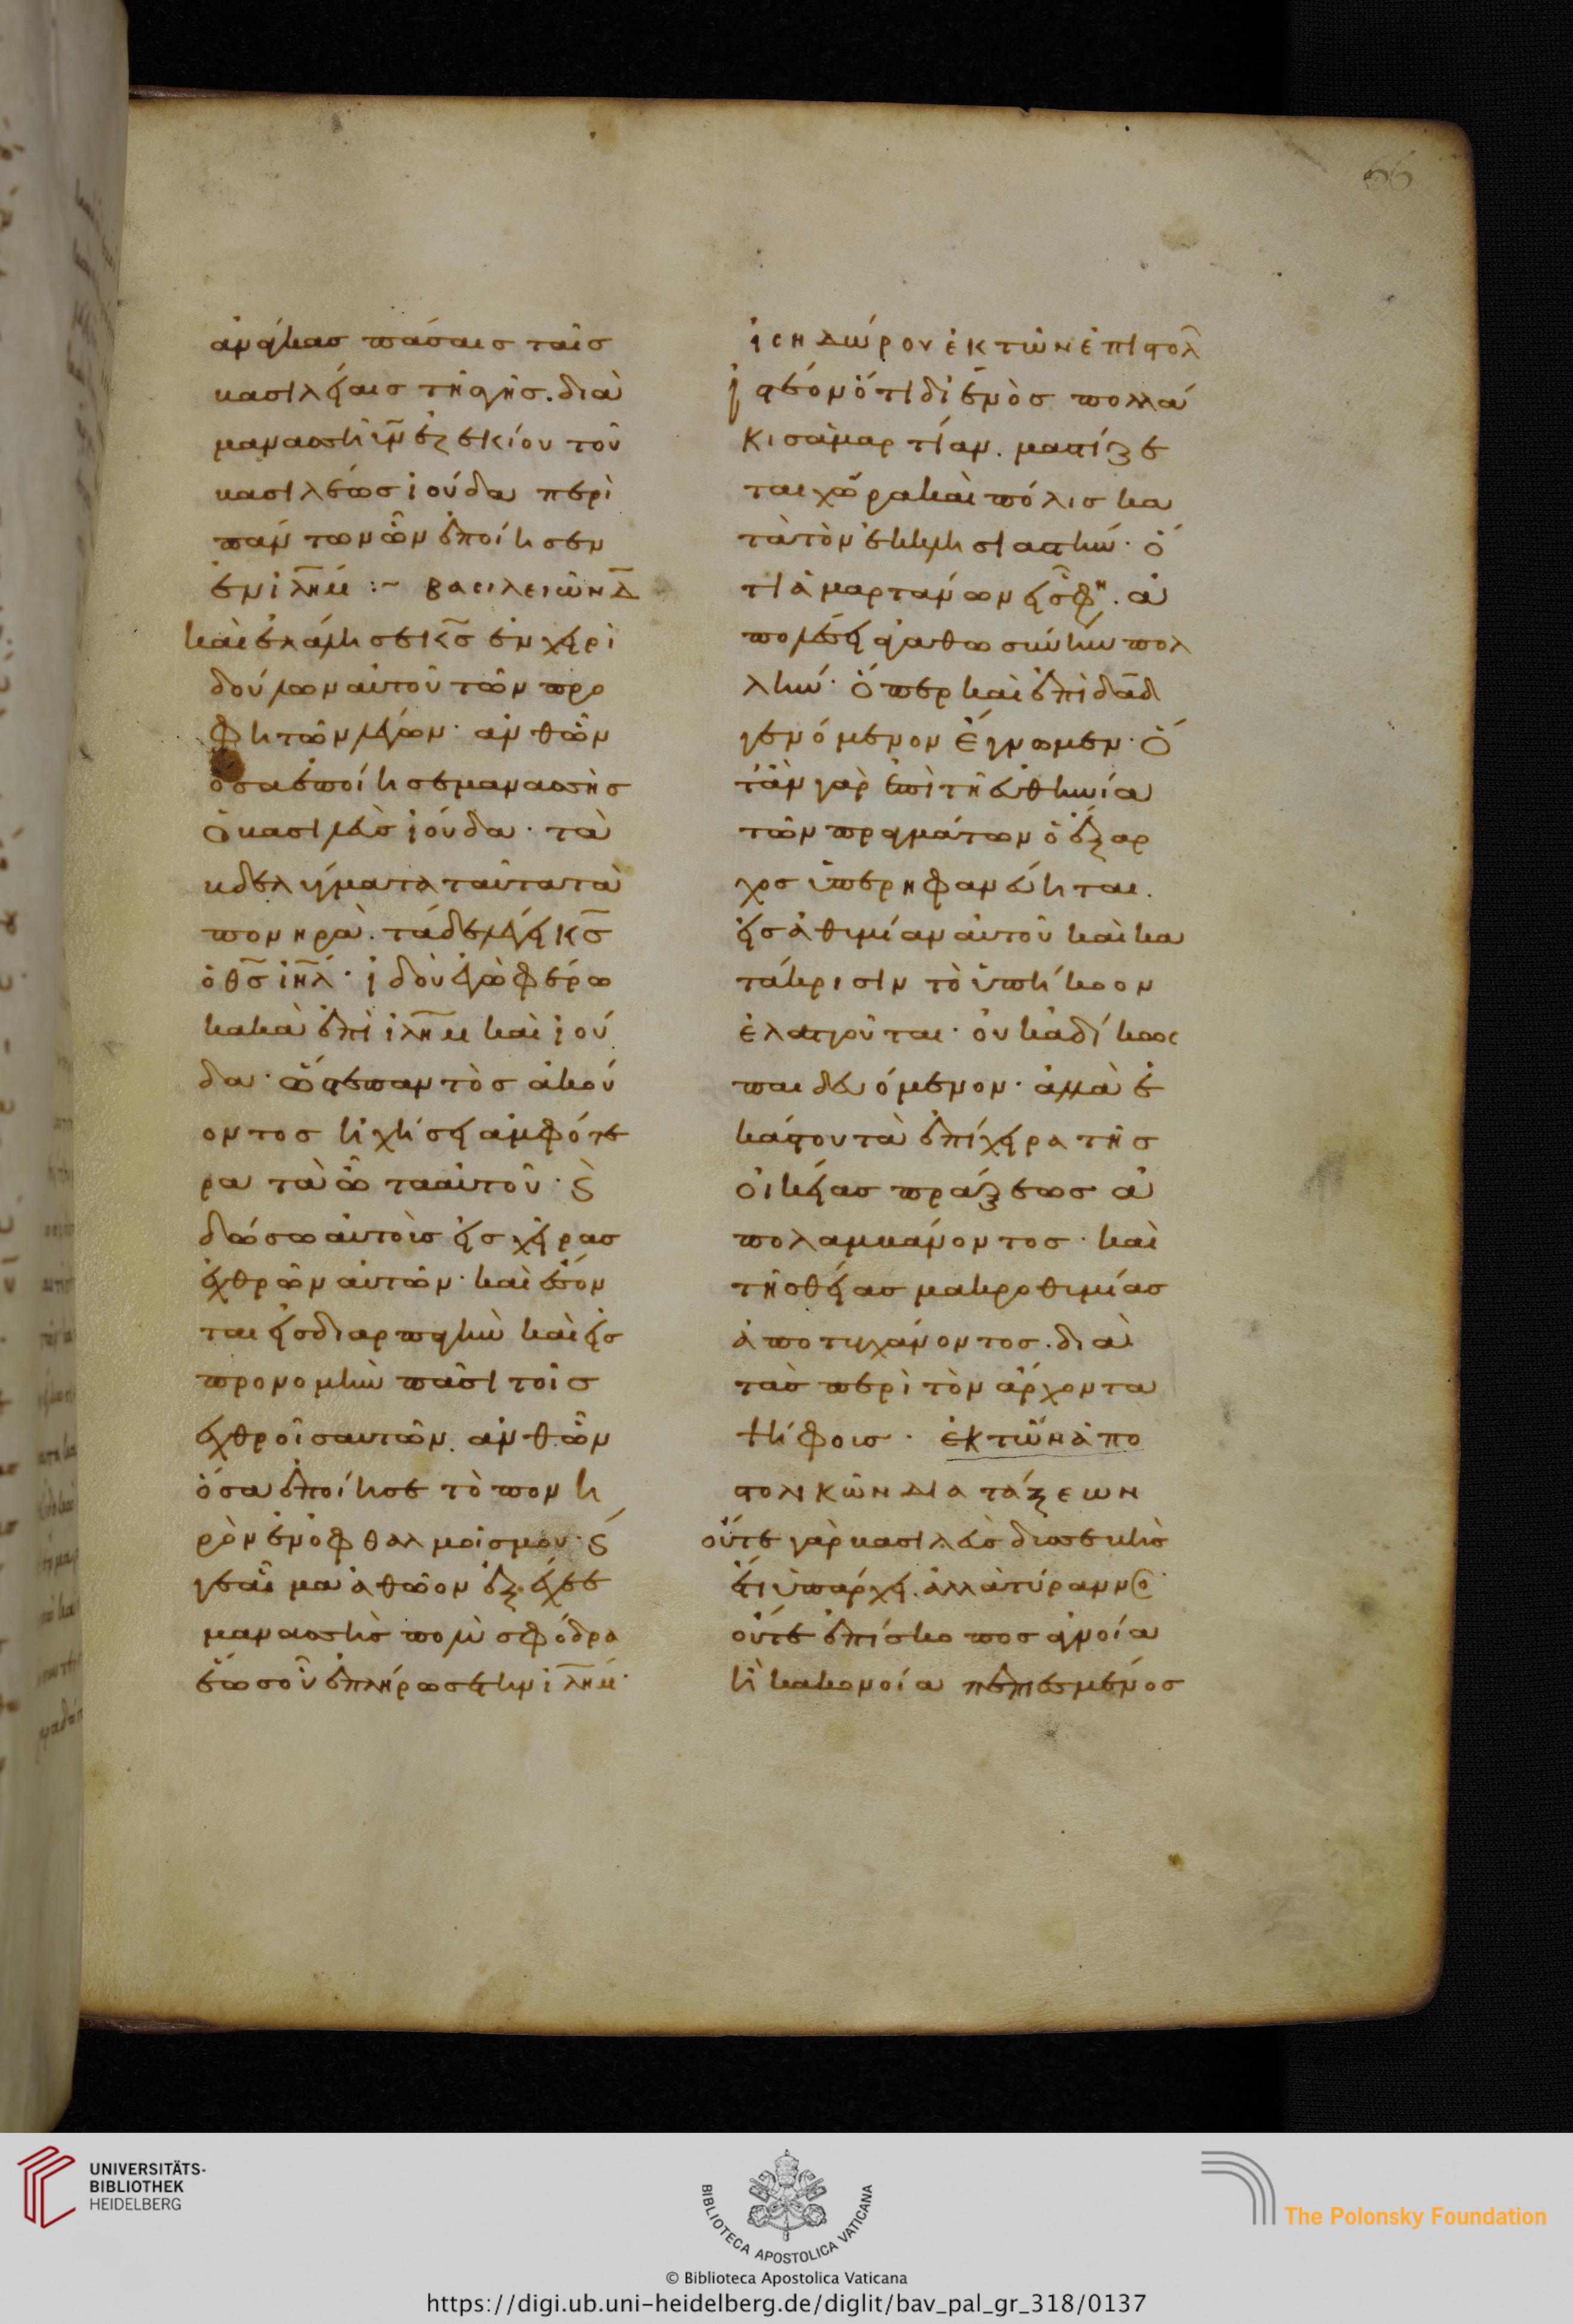 66
ἀνάγκας πάσαις ταῖς
βασιλείαις τῆς γῆς. διὰ
μανασσὴ υἱὸν ἐζεκίου τοῦ
βασιλέως ἰούδα περὶ
πάντων ὧν ἐποίησεν
ἐν ἰλημ :~ βασιλειῶν Δ
καὶ ἐλάλησε κς ἐν χειρὶ
δούλων αὐτοῦ τῶν προ
φητῶν λέγων· ἀνθ ὧν
ὅσα ἐποίησε μανασσῆς
ὁ βασιλεὺς ἰούδα· τὰ
βδελύγματα ταῦτα τὰ
πονηρὰ. τάδε λέγει κς
ὁ θς ιηλ· ἰδοὺ ἐγὼ φέρω
κακὰ ἐπὶ ἰλημ καὶ ἰού
δα· ὥστε παντὸς ἀκού
οντος ἠχήσει ἀμφότε
ρα τὰ ὦτα αὐτοῦ· ϛ
δώσω αὐτοὺς εἰς χεῖρας
ἐχθρῶν αὐτῶν· καὶ ἔσον
ται εἰς διαρπαγὴν καὶ εἰς
προνομὴν πᾶσι τοῖς
ἐχθροῖς αὐτῶν. ἀνθ ὧν
ὅσα ἐποίησε τὸ πονη
ρὸν ἐν ὀφθαλμοῖς μου· ϛ
γε αἷμα ἀθῶον ἐξέχεε
μανασσῆς πολὺ σφόδρα
ἕως οὗ ἐπλήρωσε τὴν ἰλημ·
ἰσηδώρου ἐκ τῶν ἐπιστολ
ἰστέον ὅτι δι ἑνὸς πολλά
κις ἁμαρτίαν. μαστίζε
ται χώρα καὶ πόλις κα
τὰ τὸν ἐκκλησιαστήν· ὅ
τι ἁμαρτάνων εἷς φη. ἀ
πολέσει ἀγαθωσύνην πολ
λήν· ὅπερ καὶ ἐπὶ δαδ
γενόμενον ἔγνωμεν· ὅ
τἂν γὰρ ἐπὶ τῇ εὐθηνία
τῶν πραγμάτων ὁ ἔξαρ
χος ὑπερηφανεύηται.
εἰς ἀθυμίαν αὐτοῦ καὶ κα
τάκρισιν τὸ ὑπήκοον
ἐλαττοῦται· οὐκ ἀδίκως
παιδευόμενον· ἀλλὰ ἑ
κάστου τὰ ἐπίχειρα τῆς
οἰκείας πράξεως ἀ
πολαμβάνοντος· καὶ
τῆς θείας μακροθυμίας
ἀποτυγχάνοντος. διὰ
τὰς περὶ τὸν ἄρχοντα
ψήφοις· ἐκ τῶν ἀπο
στολικῶν διατάξεων
οὔτε γὰρ βασιλεὺς δυσσεβὴς
ἔτι ὑπάρχει. ἀλλὰ τύραννος·
οὔτε ἐπίσκοπος ἀγνοία
ἢ κακονοία πεπιεσμένος
UNIVERSITÄTS-
BIBLIOTHEK
HEIDELBERG
BIBLIOTECA APOSTOLICA VATICANA
The Polonsky Foundation
© Biblioteca Apostolica Vaticana
https://digi.ub.uni-heidelberg.de/diglit/bav_pal_gr_318/0137